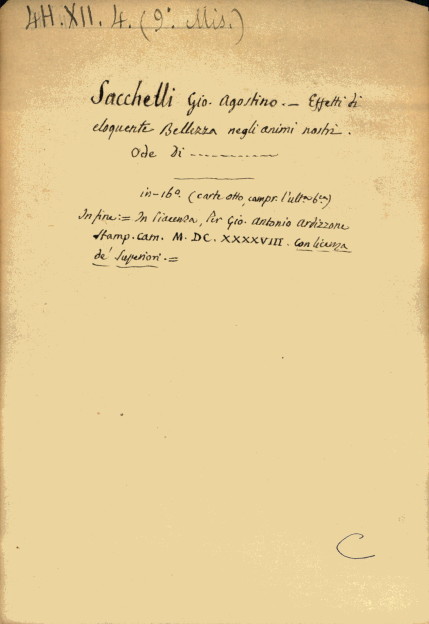 4H.XII. 4. (9° Mis.)
Sacchelli Gio. Agostino. — Effetti di
eloquente Bellezza negli animi nostri.
Ode di ------------
in-16°. (carte otto, compr. l'ult.ª b.ca)
In fine: = In Piacenza, Per Gio. Antonio Ardizzone
Stamp. Cam. M. DC. XXXXVIII. Con licenza
de' Superiori. =
C